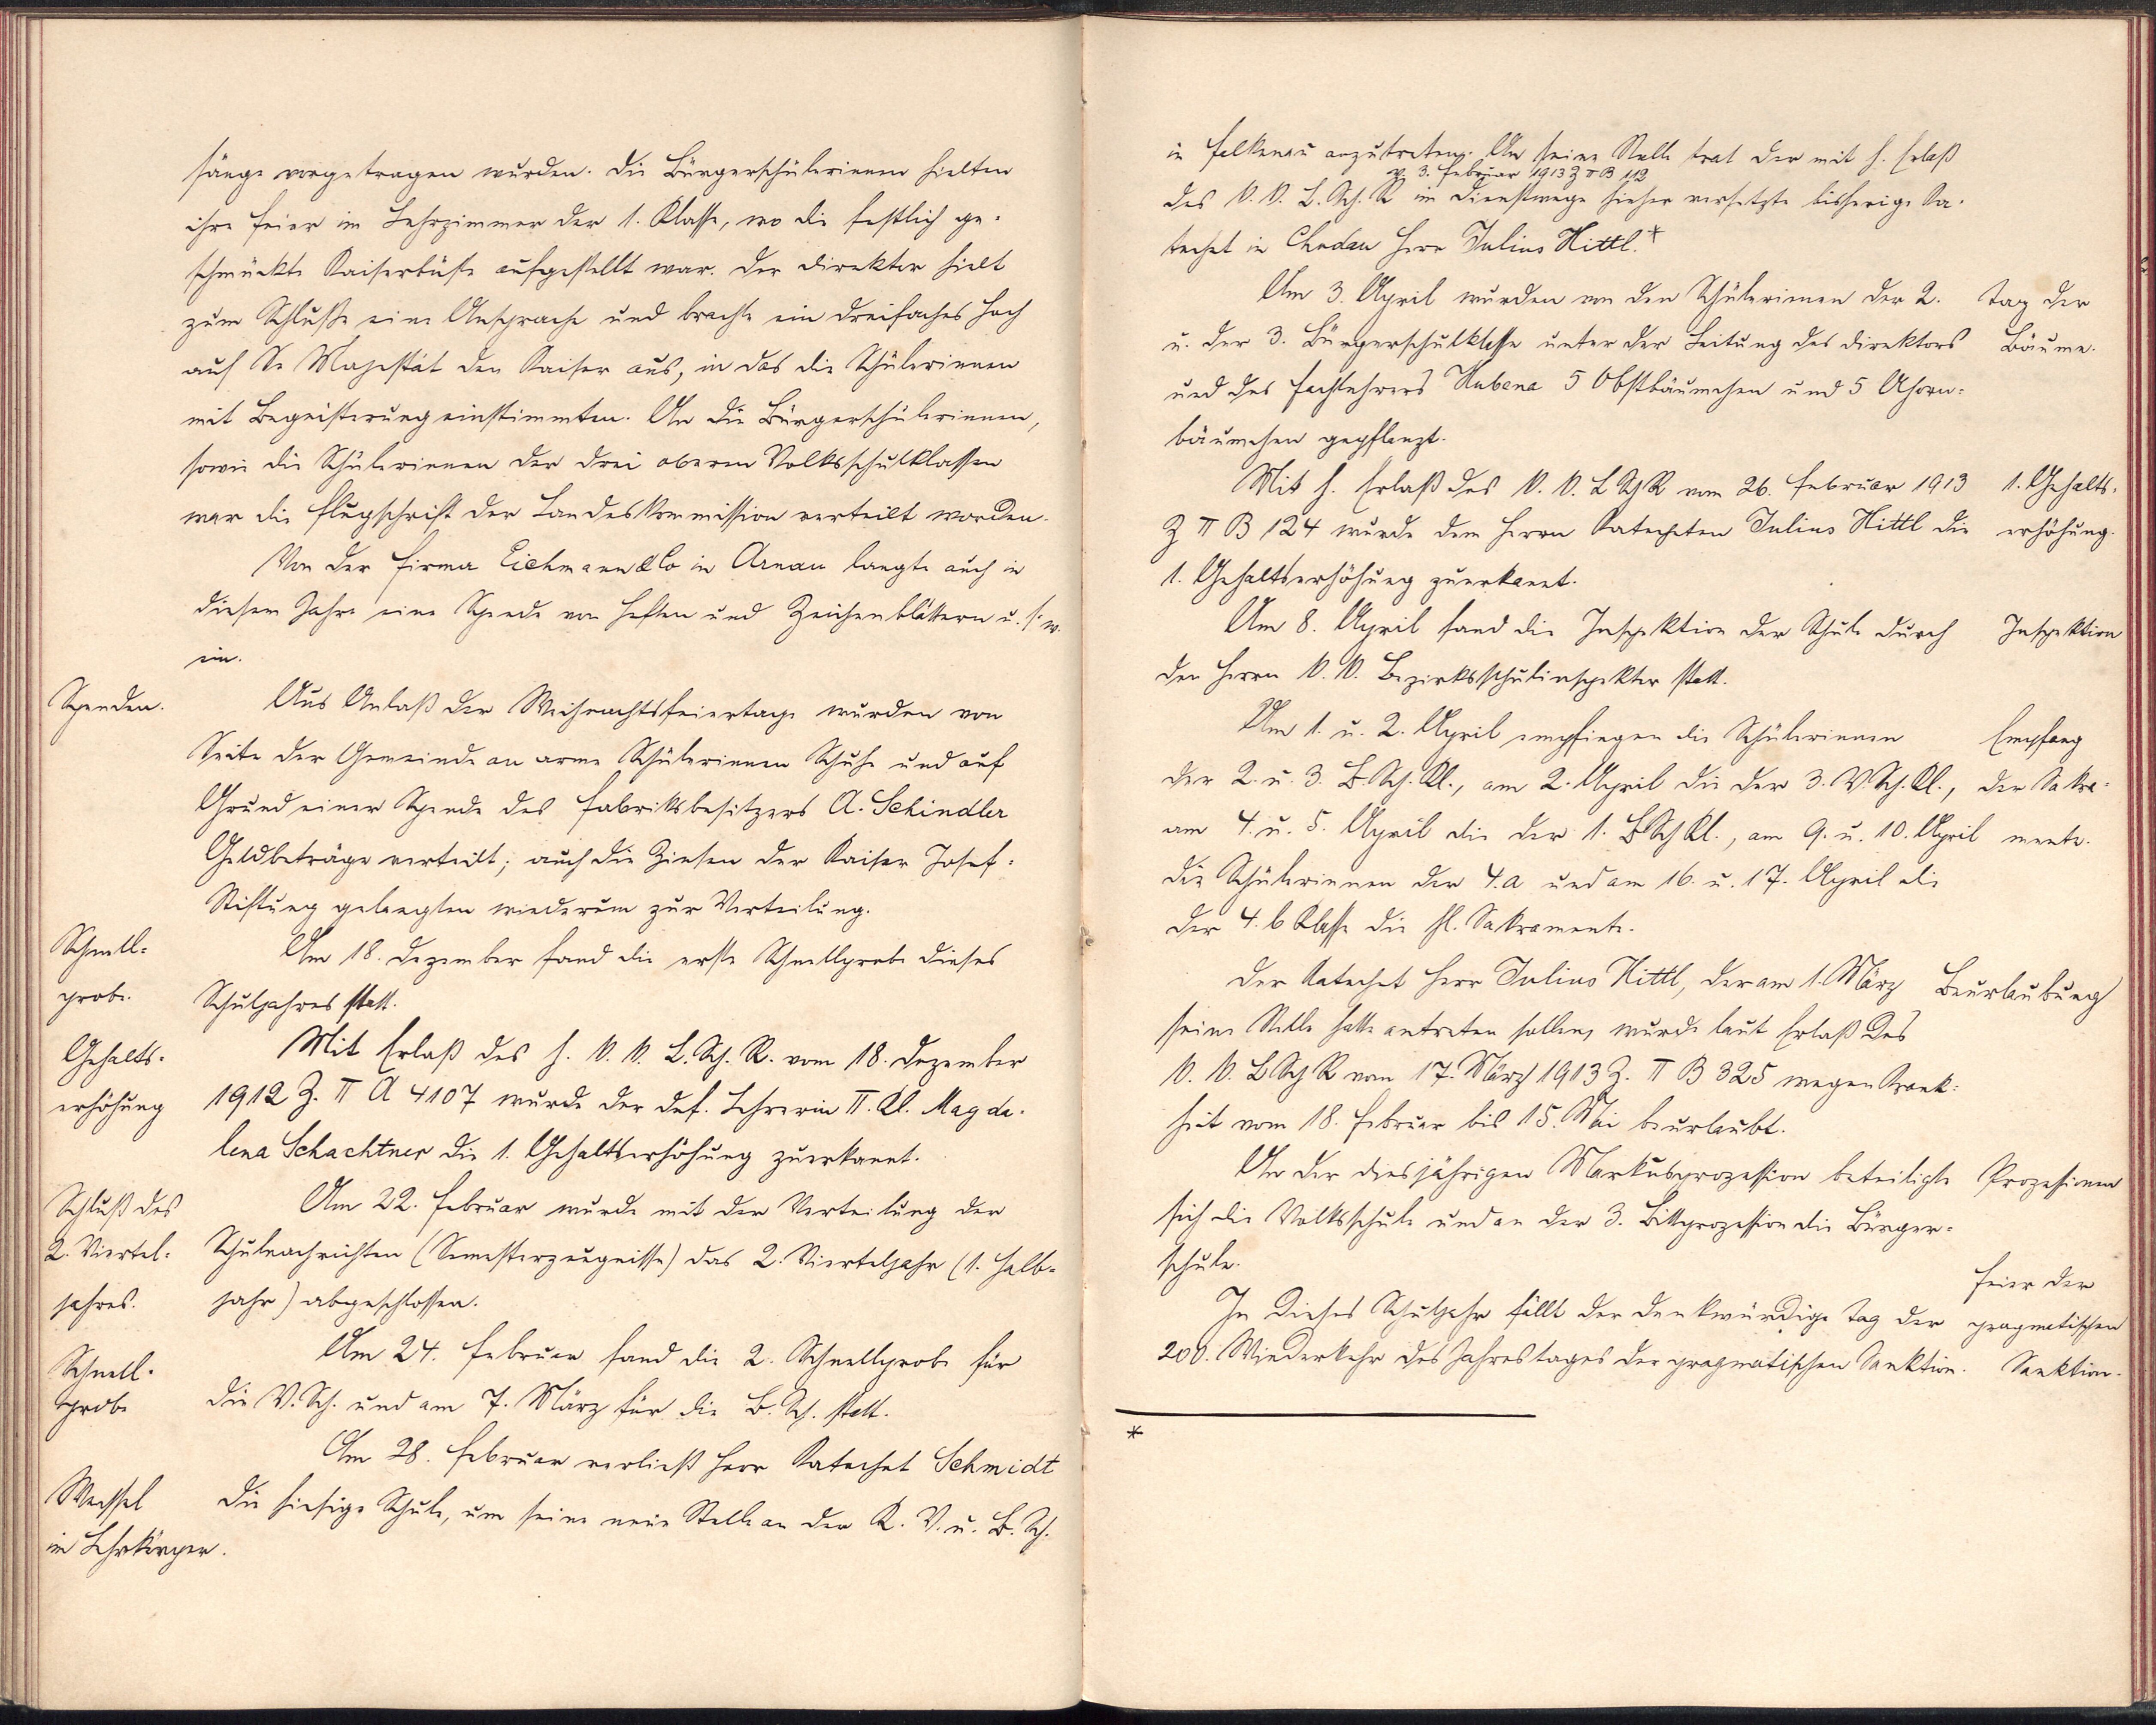 sänge vorgetragen wurden. Die Bürgerschülerinnen hielten
ihre Feier im Lehrzimmer der 1. Klasse, wo die festlich ge-
schmückte Kaiserbüste aufgestellt war. Der Direktor hielt
zum Schluße eine Ansprache und brachte ein dreifaches Hoch
auf Se Majestät den Kaiser aus, in das die Schülerinnen
mit Begeisterung einstimmten. An die Bürgerschülerinnen,
sowie die Schülerinnen der drei oberen Volksschulklassen
war die Flugschrift der Landeskommission verteilt worden.
Von der Firma Eichmann & Co in Arnau langte auch in
diesem Jahre eine Spende von Heften und Zeichenblättern u. s. w.
ein.
Spenden.
Aus Anlaß der Weihnachtsfeiertage wurden von
Seite der Gemeinde an arme Schülerinnen Schuhe und auf
Grund einer Spende des Fabriksbesitzers A. Schindler
Geldbeträge verteilt; auch die Zinsen der Kaiser Josef-
Stiftung gelangten wiederum zur Verteilung.
Schnell-
probe.
Am 18. Dezember fand die erste Schnellprobe dieses
Schuljahres statt.
Gehalts-
erhöhung
Mit Erlaß des h. k. k. L. Sch. R. vom 18. Dezember
1912 Z. II A 4107 wurde der def. Lehrerin II. Kl. Magda-
lena Schachtner die 1. Gehaltserhöhung zuerkannt.
Schluß des
2. Viertel-
jahres.
Am 22. Februar wurde mit der Verteilung der
Schulnachrichten (Semesterzeugnisse) das 2. Vierteljahr (1. Halb-
jahr) abgeschlossen.
Schnell-
probe
Am 24. Februar fand die 2. Schnellprobe für
die V. Sch. und am 7. März für die B. Sch. statt.
Am 28. Februar verließ Herr Katechet Schmidt
Wechsel
im Lehrkörper.
die hiesige Schule, um seine neue Stelle an der K. V. u. B. Sch.
in Falkenau anzutreten. An seine Stelle trat der mit h. Erlaß
v. 3. Februar 1913 Z II B 112
des k. k. L. Sch. R im Dienstwege hieher versetzte bisherige Ka-
techet in Chodau Herr Julius Hittl.*
Am 3. April wurden von den Schülerinnen der 2.
u. der 3. Bürgerschulklasse unter der Leitung des Direktors
und des Fachlehrers Kubena 5 Obstbäumchen und 5 Ahorn-
bäumchen gepflanzt.
Tag der
Bäume.
Mit h. Erlaß des k. k. L Sch R vom 26. Februar 1913
Z II B 124 wurde dem Herrn Katecheten Julius Hittl die
1. Gehaltserhöhung zuerkannt.
1. Gehalts-
erhöhung.
Am 8. April fand die Inspektion der Schule durch
den Herrn k. k. Bezirksschulinspektor statt.
Inspektion
Am 1. u. 2. April empfingen die Schülerinnen
der 2. u. 3. B. Sch. Kl., am 2. April die der 3. V. Sch. Kl.,
am 4. u. 5. April die der 1. B Sch Kl., am 9. u. 10. April
die Schülerinnen der 4. a und am 16. u. 17. April die
der 4. b Klasse die hl. Sakramente.
Empfang
der Sakra-
mente.
Der Katechet Herr Julius Hittl, der am 1. März
seine Stelle hätte antreten sollen, wurde laut Erlaß des
k. k. L Sch R vom 17. März 1913 Z. II B 325 wegen Krank-
heit vom 18. Februar bis 15. Mai beurlaubt.
Beurlaubung
An der diesjährigen Markusprozession beteiligte
sich die Volksschule und an der 3. Bittprozession die Bürger-
schule.
Prozesionen
In dieses Schuljahr fällt der denkwürdige Tag der
200. Wiederkehr des Jahrestages der pragmatischen Sanktion.
Feier der
pragmatischen
Sanktion.
*